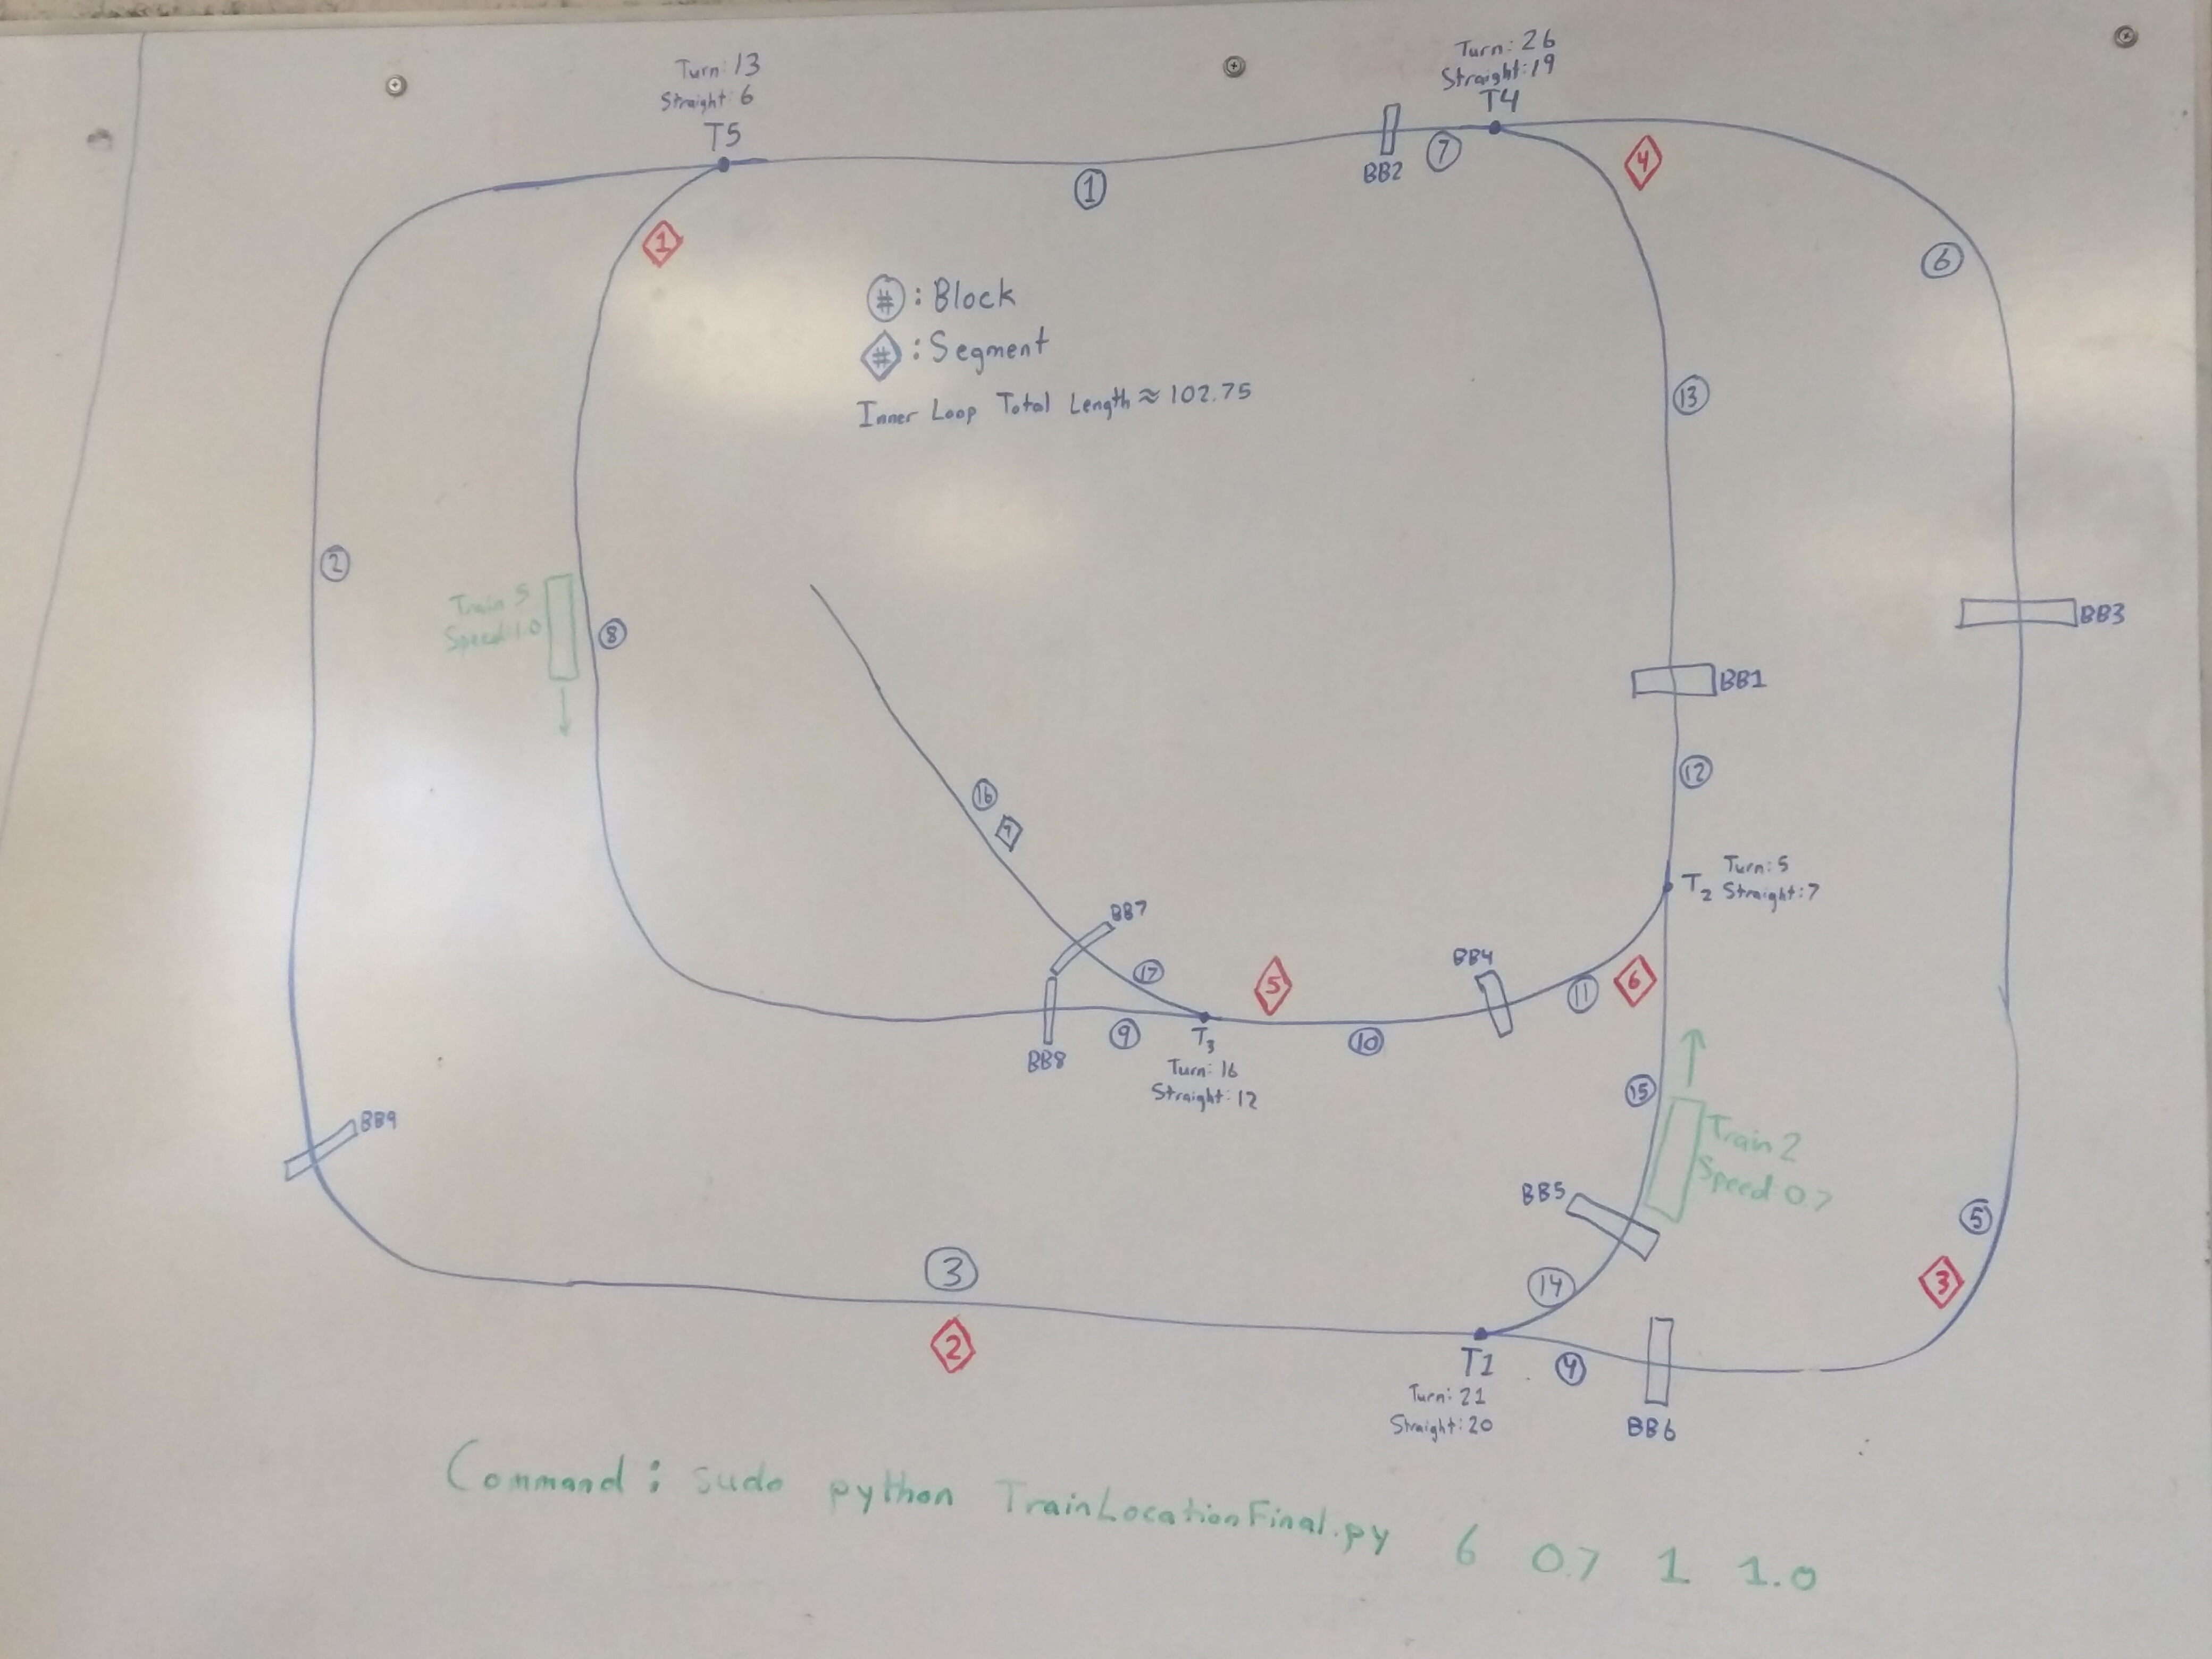 Turn: 13
Straight: 6
T5
Turn: 26
Straight: 19
T4
BB2
7
4
1
1
6
#: Block
#: Segment
Inner Loop Total Length ≈ 102.75
13
2
Train 5
Speed: 1.0
8
BB3
BB1
12
16
T2
Turn: 5
Straight: 7
BB7
17
5
BB4
11
6
9
T3
Turn: 16
Straight: 12
10
BB8
15
BB9
Train 2
Speed 0.7
BB5
5
3
14
3
2
T1
Turn: 21
Straight: 20
4
BB6
Command: sudo python TrainLocationFinal.py 6 0.7 1 1.0